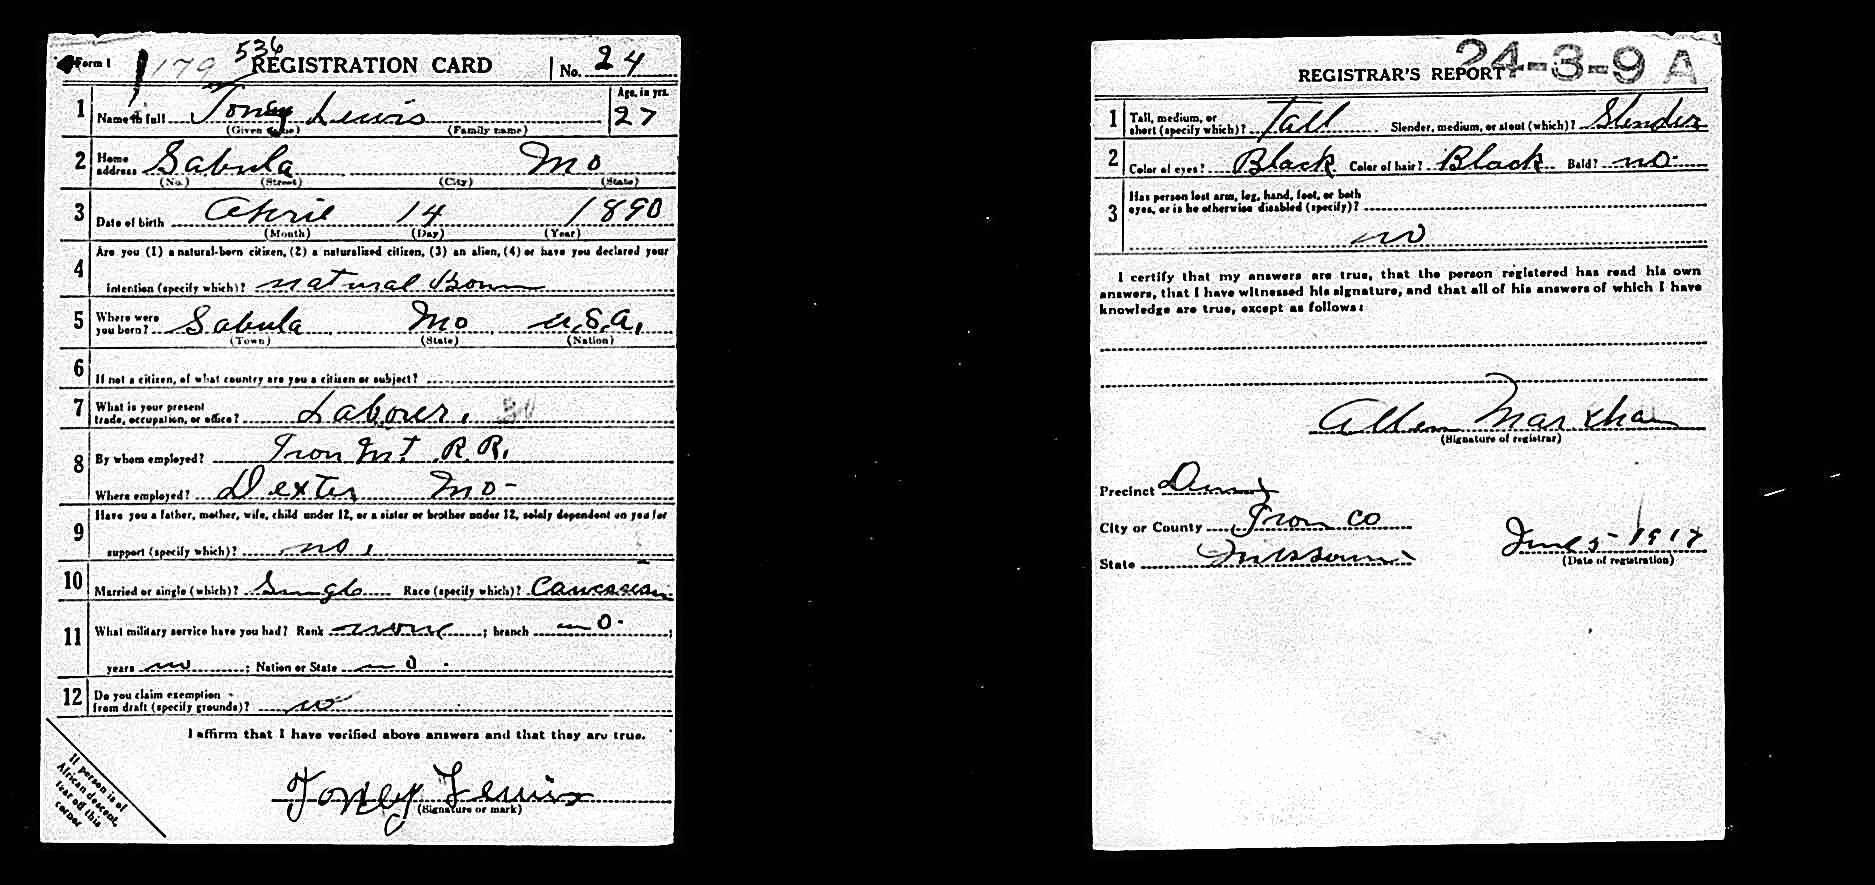 Form 1 179 536 REGISTRATION CARD No. 24
1 Name in full Toney Lewis Age, in yrs. 27
(Given name) (Family name)
2 Home address Sabula Mo
(No.) (Street) (City) (State)
3 Date of birth April 14 1890
(Month) (Day) (Year)
4 Are you (1) a natural-born citizen, (2) a naturalized citizen, (3) an alien, (4) or have you declared your
intention (specify which)? natural Born
5 Where were you born? Sabula Mo U.S.A.
(Town) (State) (Nation)
6 If not a citizen, of what country are you a citizen or subject?
7 What is your present trade, occupation, or office? Laborer,
8 By whom employed? Iron Mt R.R.
Where employed? Dexter Mo-
9 Have you a father, mother, wife, child under 12, or a sister or brother under 12, solely dependent on you for
support (specify which)? no,
10 Married or single (which)? Single Race (specify which)? Caucasian
11 What military service have you had? Rank none ; branch no ;
years no ; Nation or State no
12 Do you claim exemption from draft (specify grounds)? no
I affirm that I have verified above answers and that they are true.
Toney Lewis
(Signature or mark)
If person is of
African descent,
tear off this
corner
24-3-9 A
REGISTRAR'S REPORT
1 Tall, medium, or short (specify which)? Tall Slender, medium, or stout (which)? Slender
2 Color of eyes? Black Color of hair? Black Bald? no
3 Has person lost arm, leg, hand, foot, or both
eyes, or is he otherwise disabled (specify)?
no
I certify that my answers are true, that the person registered has read his own
answers, that I have witnessed his signature, and that all of his answers of which I have
knowledge are true, except as follows:
Allen
(Signature of registrar)
Precinct
City or County Iron Co
State Missouri June 5- 1917
(Date of registration)